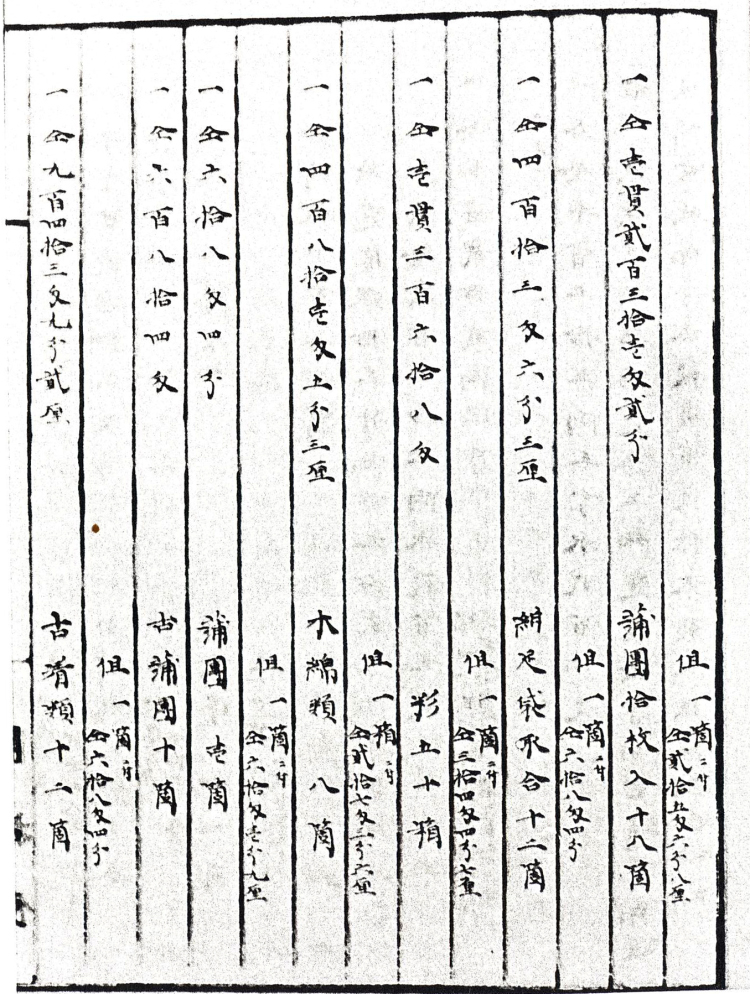 但一箇ニ付金貳拾五匁六分八厘
一金壱貫貳百三拾壱匁貳分 蒲團拾枚入十八箇
但一箇ニ付金六拾八匁四分
一金四百拾三匁六分三厘 絹足袋取合十二箇
但一箇ニ付金三拾四匁四分七厘
一金壱貫三百六拾八匁 五十箱
但一箱ニ付金貳拾七匁三分六厘
一金四百八拾壱匁五分三厘 木綿類 八箇
但一箇ニ付金六拾匁壱分九厘
一金六拾八匁四分 蒲團 壱箇
一金六百八拾四匁 古蒲團十箇
但一箇ニ付金六拾八匁四分
一金九百四拾三匁九分貳厘 古着類十二箇